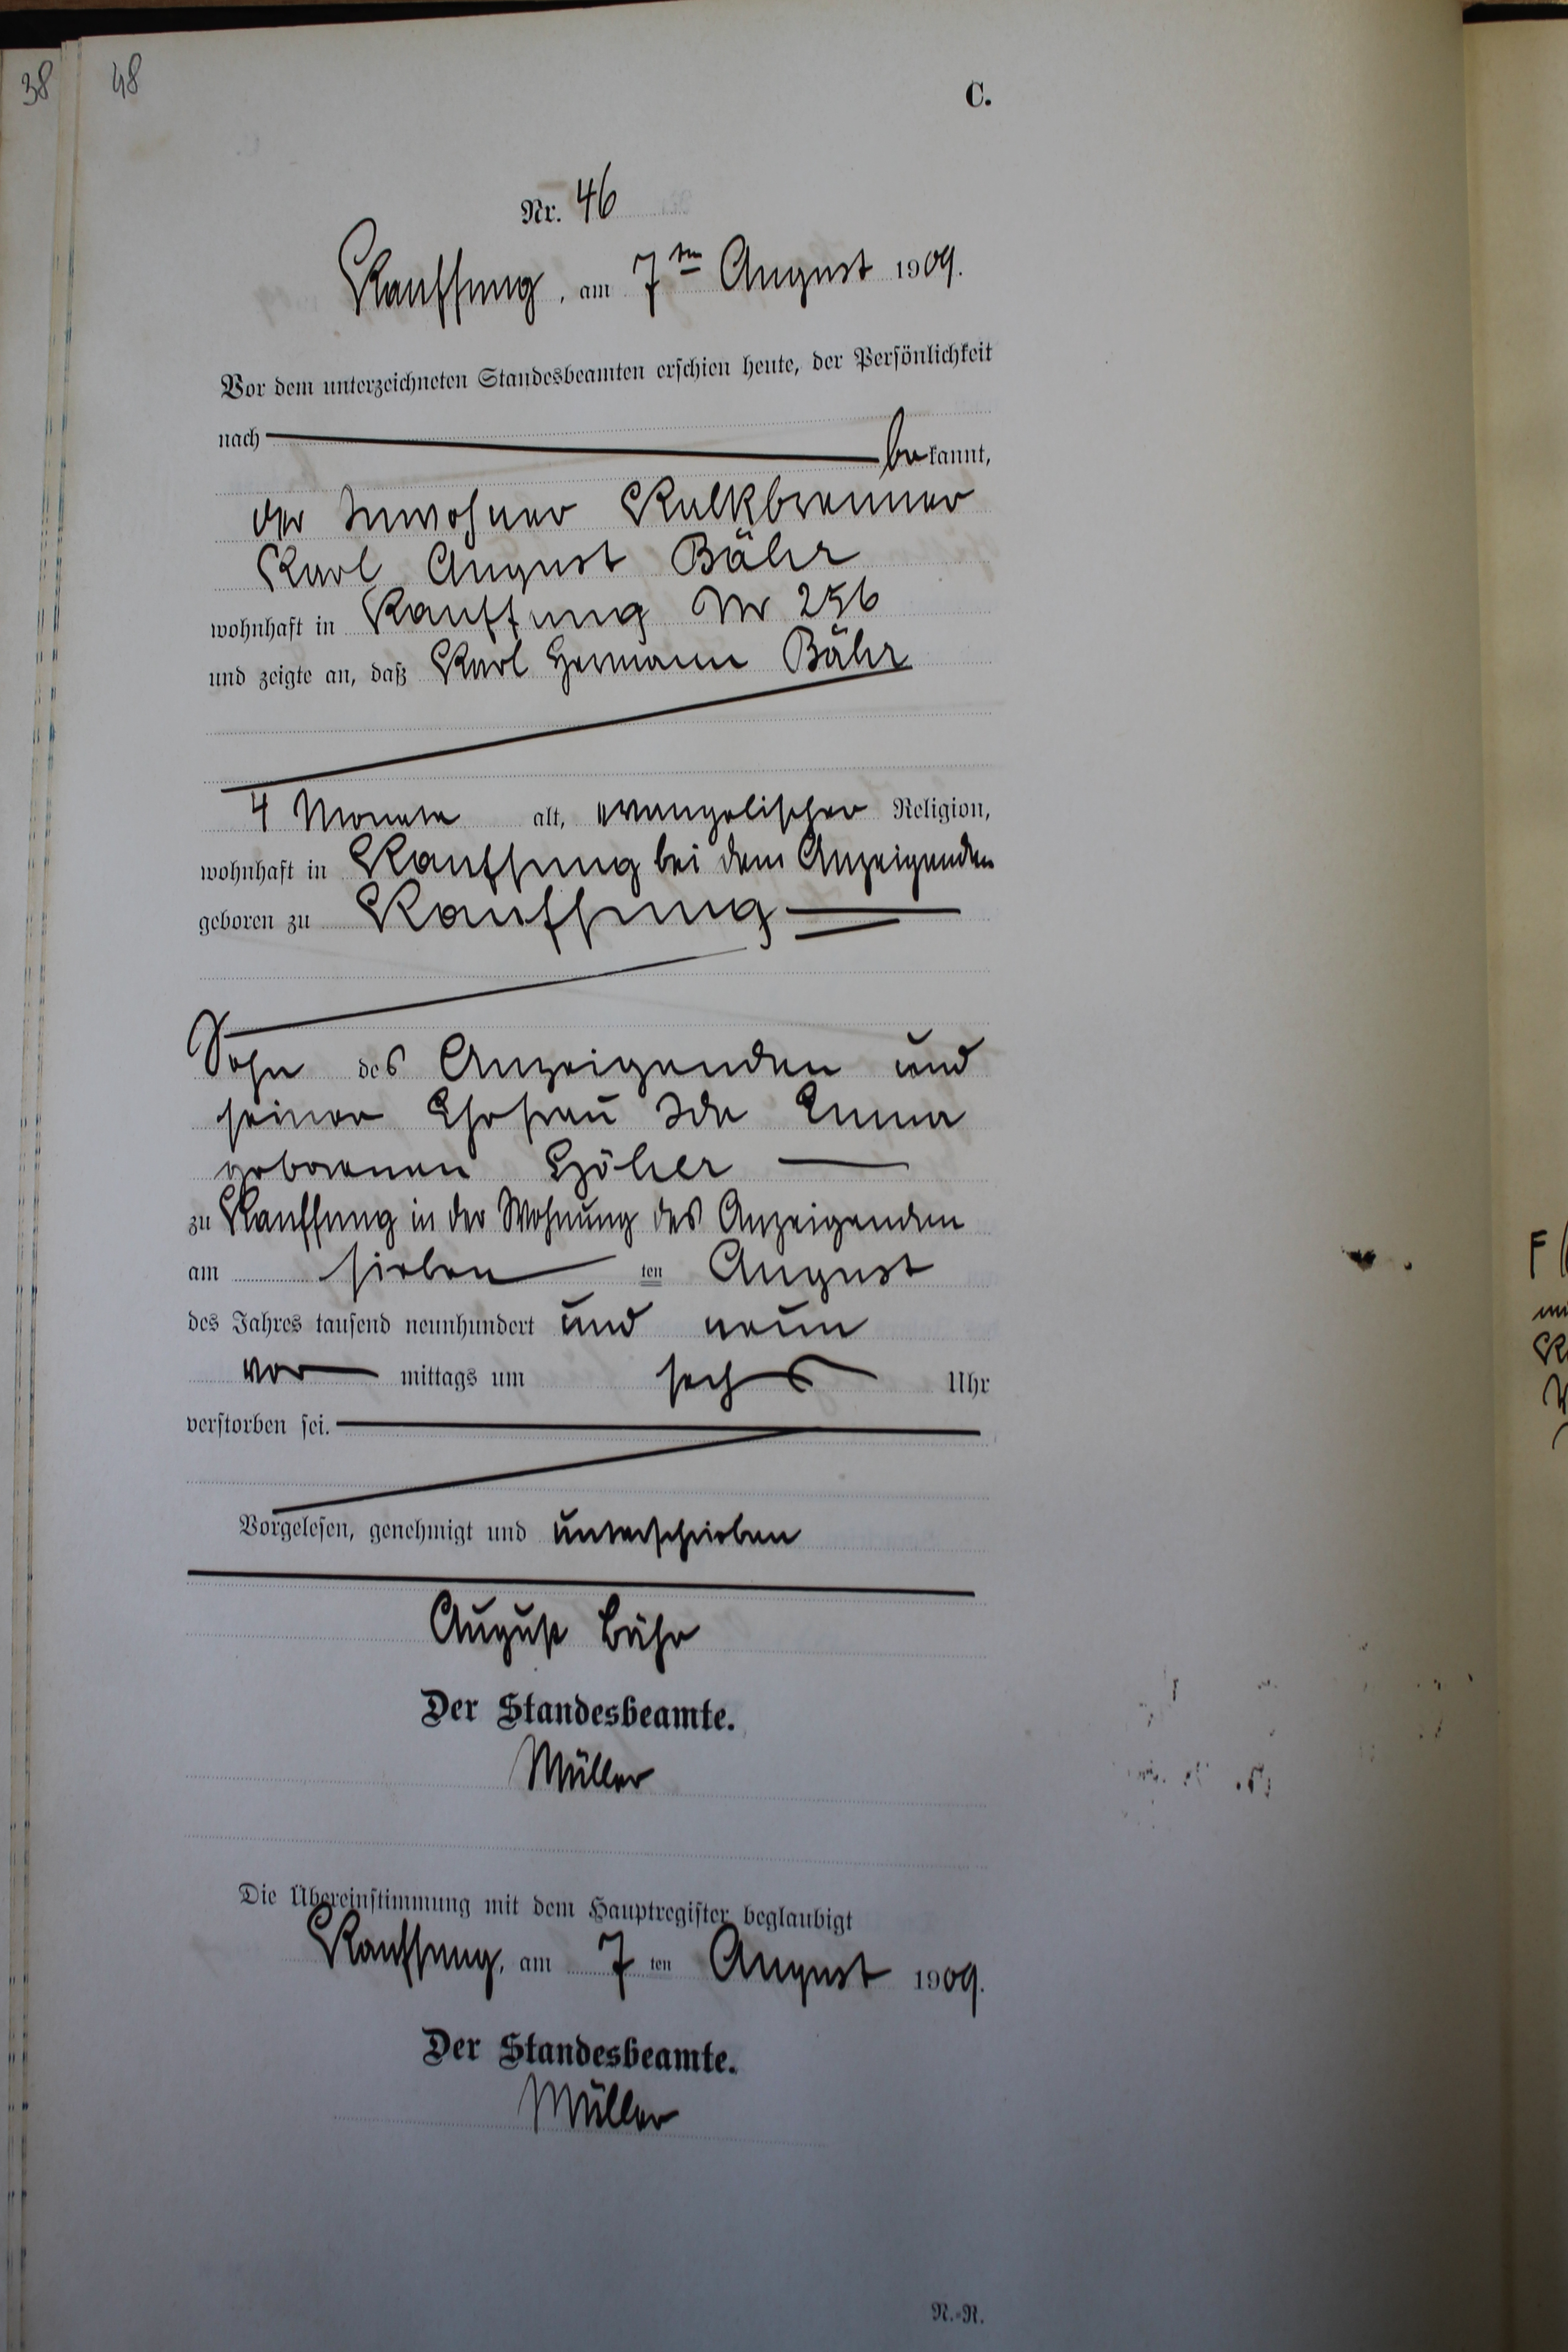 38 48
C.
Nr. 46
Kauffung, am 7ten August 1909.
Vor dem unterzeichneten Standesbeamten erschien heute, der Persönlichkeit
nach bekannt,
der Inwohner Kalkbrenner
Karl August Bähr
wohnhaft in Kauffung Nr 256
und zeigte an, daß Karl Hermann Bähr
4 Monate alt, evangelischer Religion,
wohnhaft in Kauffung bei dem Anzeigenden
geboren zu Kauffung
Sohn des Anzeigenden und
seiner Ehefrau Ida Emma
geborenen
zu Kauffung in der Wohnung des Anzeigenden
am sieben ten August
des Jahres tausend neunhundert und neun
vor mittags um sechs Uhr
verstorben sei.
Vorgelesen, genehmigt und unterschrieben
August Bähr
Der Standesbeamte.
Müller
Die Übereinstimmung mit dem Hauptregister beglaubigt
Kauffung, am 7 ten August 1909.
Der Standesbeamte.
Müller
N.=N.